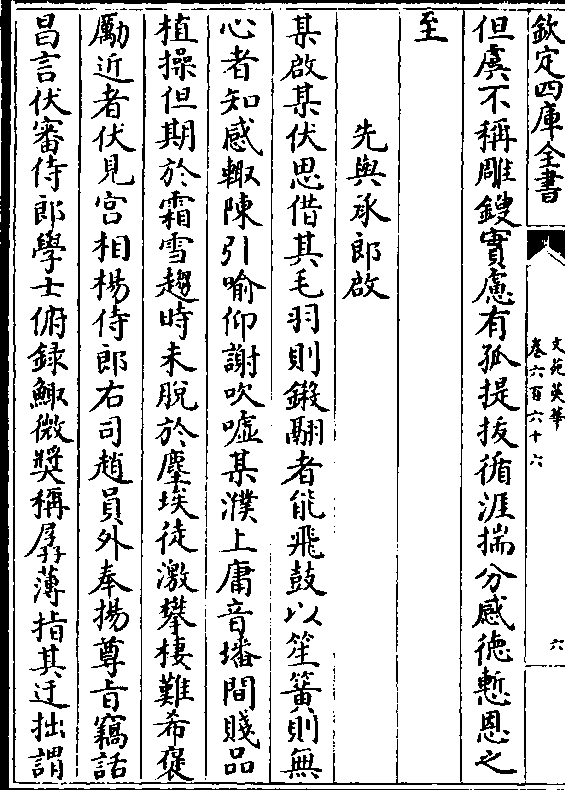 欽定四庫全書
文苑英華
卷六百六十六
六
但虞不稱雕鎪實慮有孤提拔循涯揣分感徳慙恩之
至
先與承郎啟
某啟某伏思借其毛羽則鎩翮者能飛鼓以笙簧則無
心者知感輙陳引喻仰謝吹嘘某濮上庸音墦間賤品
植操但期於霜雪趨時未脫於塵埃徒激攀棲難希褒
勵近者伏見宫相楊侍郎右司趙員外奉揚尊㫖竊話
昌言伏審侍郎學士俯録鯫微奬稱孱薄指其迂拙謂